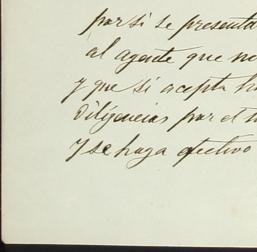 por si se presenta
al agente que no
y que si acepta ha
diligencias por el
y se haga efectivo